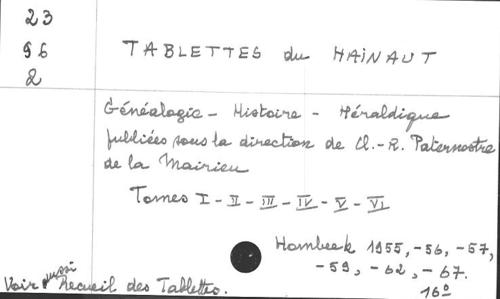 23
96
2
TABLETTES du HAINAUT
Généalogie - Histoire - Héraldique
publiées sous la direction de Cl.-R. Paternostre
de la Mairieu
Tomes I - II - III - IV - V - VI
Hombeek 1955, -56, -57,
-59, -62, -67.
16º
Voir aussi Recueil des Tablettes.